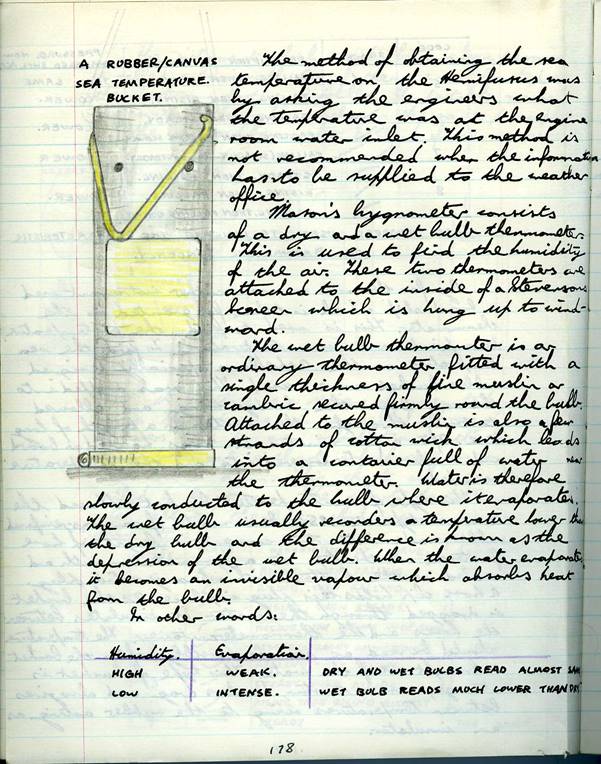 A RUBBER/CANVAS
SEA TEMPERATURE.
BUCKET.
The method of obtaining the sea
temperature on the Hemifusus was
by asking the engineers what
the temperature was at the engine
room water inlet. This method is
not recommended when the information
has to be supplied to the weather
office.
Mason's hygrometer consists
of a dry and a wet bulb thermometer.
This is used to find the humidity
of the air. These two thermometers are
attached to the inside of a Stevensons
screen which is hung up to wind-
ward.
The wet bulb thermometer is an
ordinary thermometer fitted with a
single thickness of fine muslin or
cambric secured firmly round the bulb.
Attached to the muslin is also a few
strands of cotton wick which leads
into a container full of water near
the thermometer. Water is therefore
slowly conducted to the bulb where it evaporates.
The wet bulb usually recorders a temperature lower than
the dry bulb and the difference is known as the
depression of the wet bulb. When the water evaporates
it becomes an invisible vapour which absorbs heat
from the bulb.
In other words:
Humidity. Evaporation.
HIGH WEAK. DRY AND WET BULBS READ ALMOST SAME
LOW INTENSE. WET BULB READS MUCH LOWER THAN DRY
178